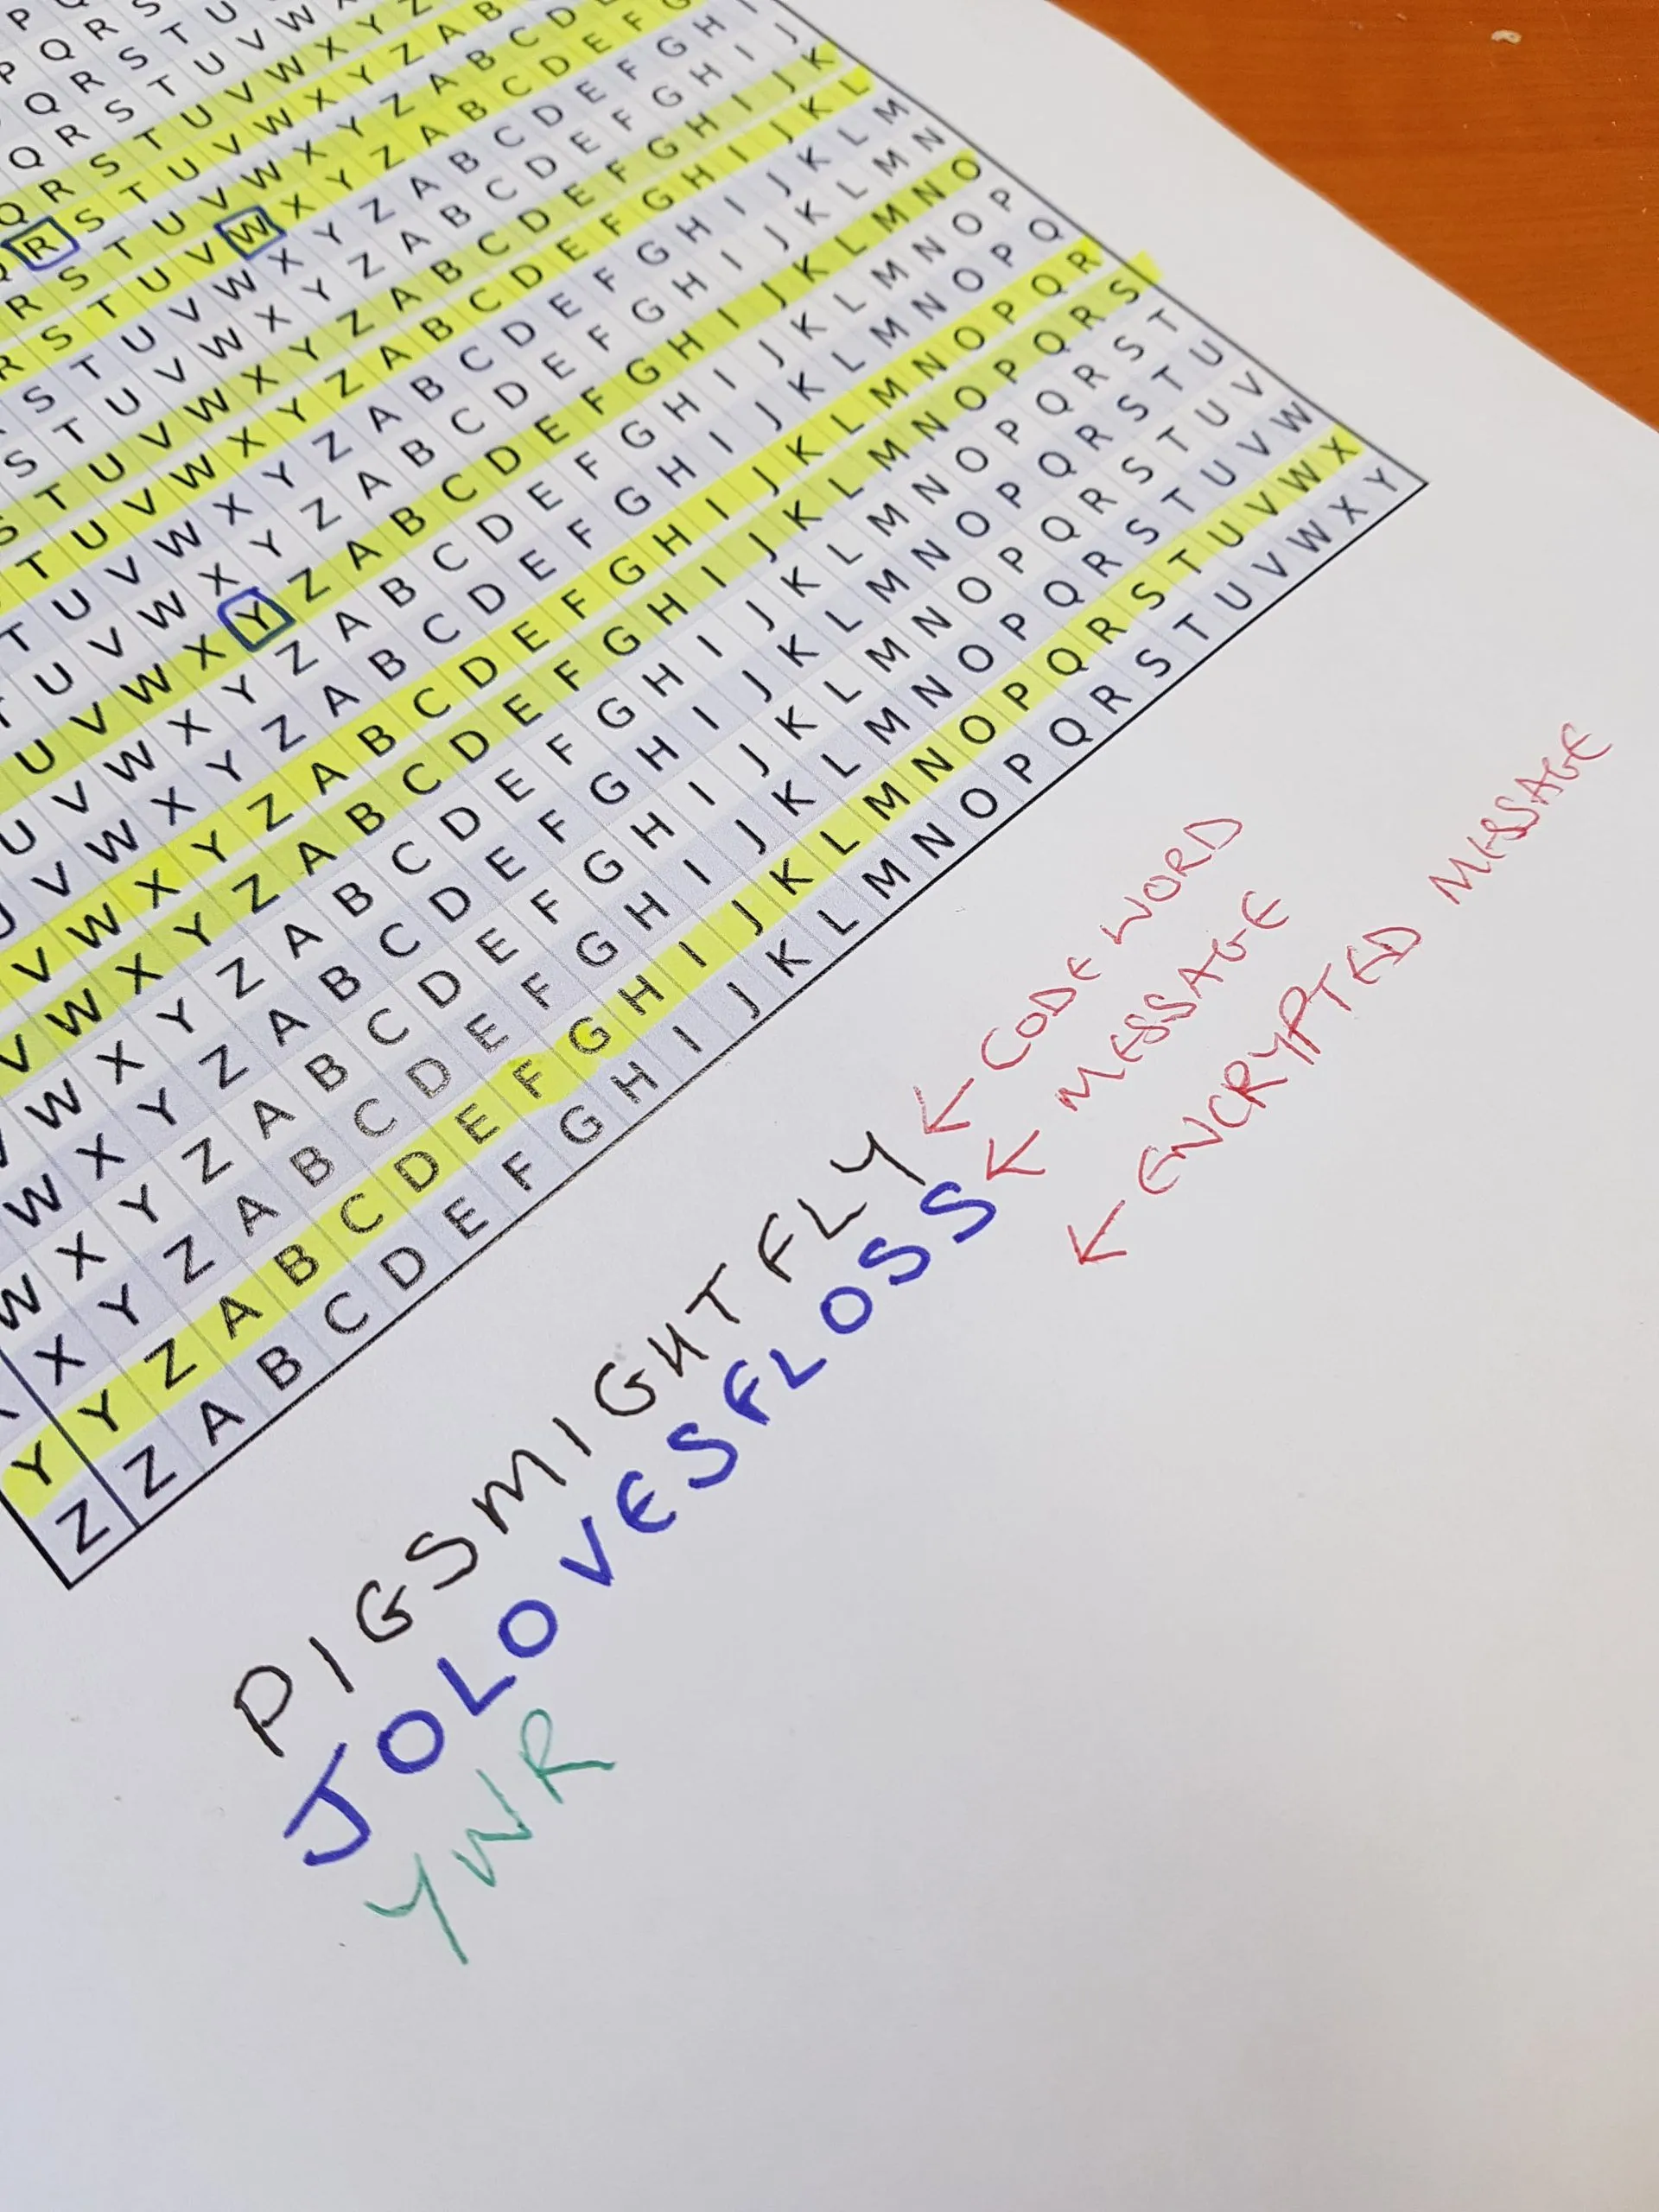 P Q
P Q R S
Q R S T U
Q R S T U V W
Q R S T U V W X Y Z
R S T U V W X Y Z A B
R S T U V W X Y Z A B C D
R S T U V W X Y Z A B C D E F G
S T U V W X Y Z A B C D E F G H I
S T U V W X Y Z A B C D E F G H I J
S T U V W X Y Z A B C D E F G H I J K
T U V W X Y Z A B C D E F G H I J K L
T U V W X Y Z A B C D E F G H I J K L M
T U V W X Y Z A B C D E F G H I J K L M N
U V W X Y Z A B C D E F G H I J K L M N O
U V W X Y Z A B C D E F G H I J K L M N O P
V W X Y Z A B C D E F G H I J K L M N O P Q
V W X Y Z A B C D E F G H I J K L M N O P Q R
V W X Y Z A B C D E F G H I J K L M N O P Q R S
W X Y Z A B C D E F G H I J K L M N O P Q R S T
W X Y Z A B C D E F G H I J K L M N O P Q R S T U
W X Y Z A B C D E F G H I J K L M N O P Q R S T U V
X Y Z A B C D E F G H I J K L M N O P Q R S T U V W
Y Y Z A B C D E F G H I J K L M N O P Q R S T U V W X
Z Z A B C D E F G H I J K L M N O P Q R S T U V W X Y
PIGSMIGHTFLY ← CODE WORD
JOLOVESFLOSS ← MESSAGE
YWR ← ENCRYPTED MESSAGE